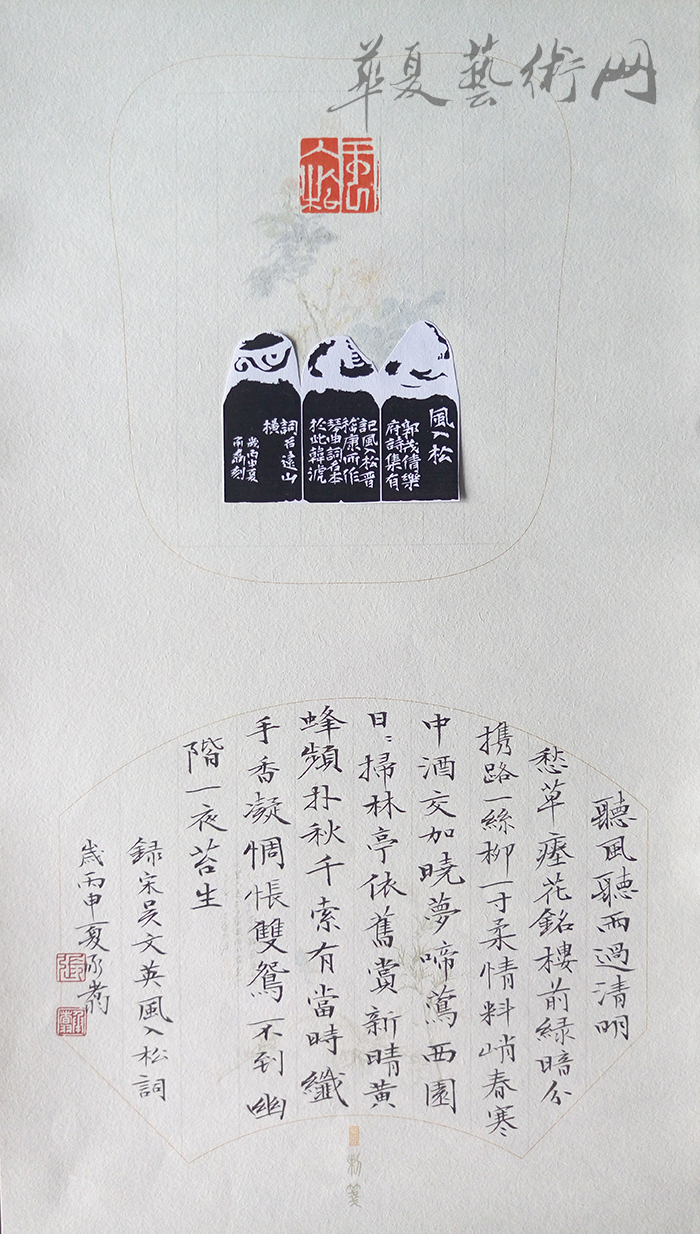 華夏藝術网
風入松
風入松
郭茂倩樂
府詩集有
記風入松晋
嵇康所作
琴曲詞名本
於此韓淲
詞名遠山
橫
歲丙申夏
聽風聽雨過清明
愁草瘞花銘樓前緑暗分
携路一絲柳一寸柔情料峭春寒
中酒交加曉夢啼鶯西園
日〻掃林亭依舊賞新晴黄
蜂頻扑秋千索有當時纖
手香凝惆悵雙鴛不到幽
階一夜苔生
録宋吴文英風入松詞
歲丙申夏
箋